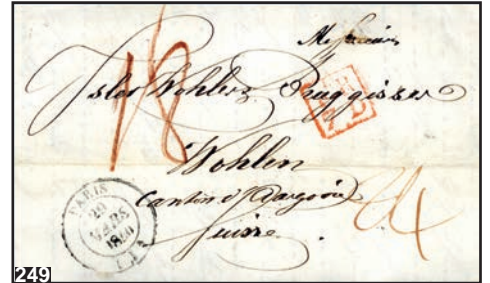 Messieurs
Isler Wohler Bruggisser
18
Wohlen
Canton d'Argovie
Suisse
PARIS
20
MARS
1840
249